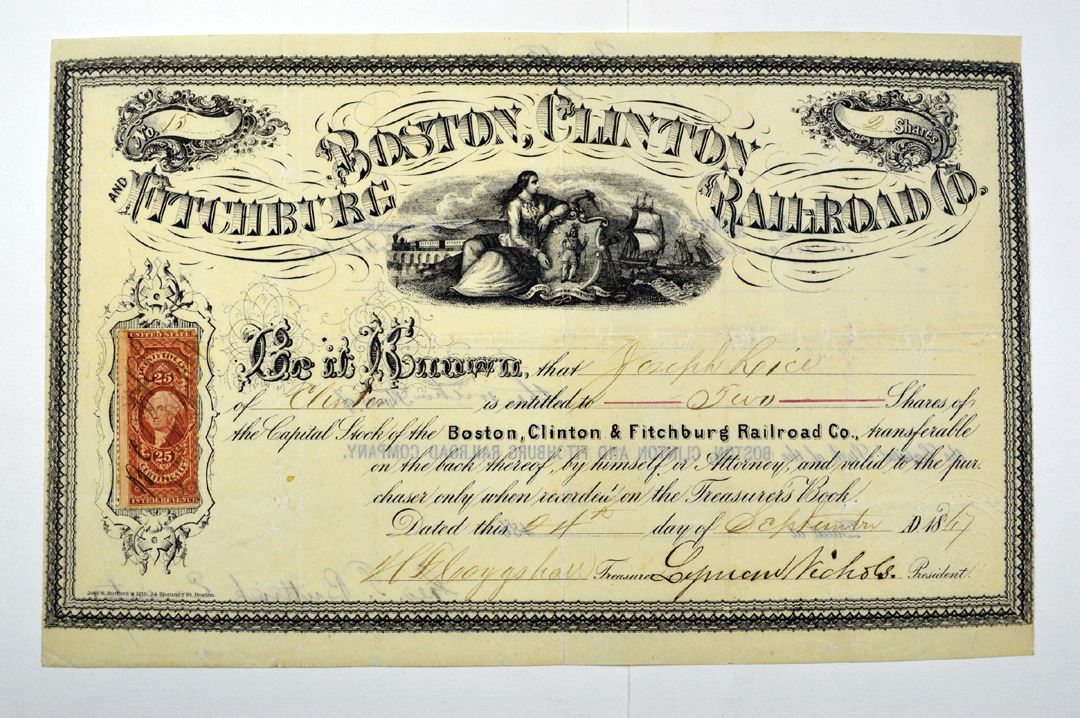 No. 15
2 Shares
BOSTON, CLINTON
AND FITCHBURG RAILROAD CO.
Be it Known, that Joseph Rice
of Clinton is entitled to Two Shares of
the Capital Stock of the Boston, Clinton & Fitchburg Railroad Co., transferable
on the back thereof, by himself or Attorney, and valid to the pur-
chaser only when recorded on the Treasurer's Book.
Dated this 24th day of September AD. 1867
Treasurer Lyman Nichols. President.
UNITED STATES
25
25
INTER. REVENUE